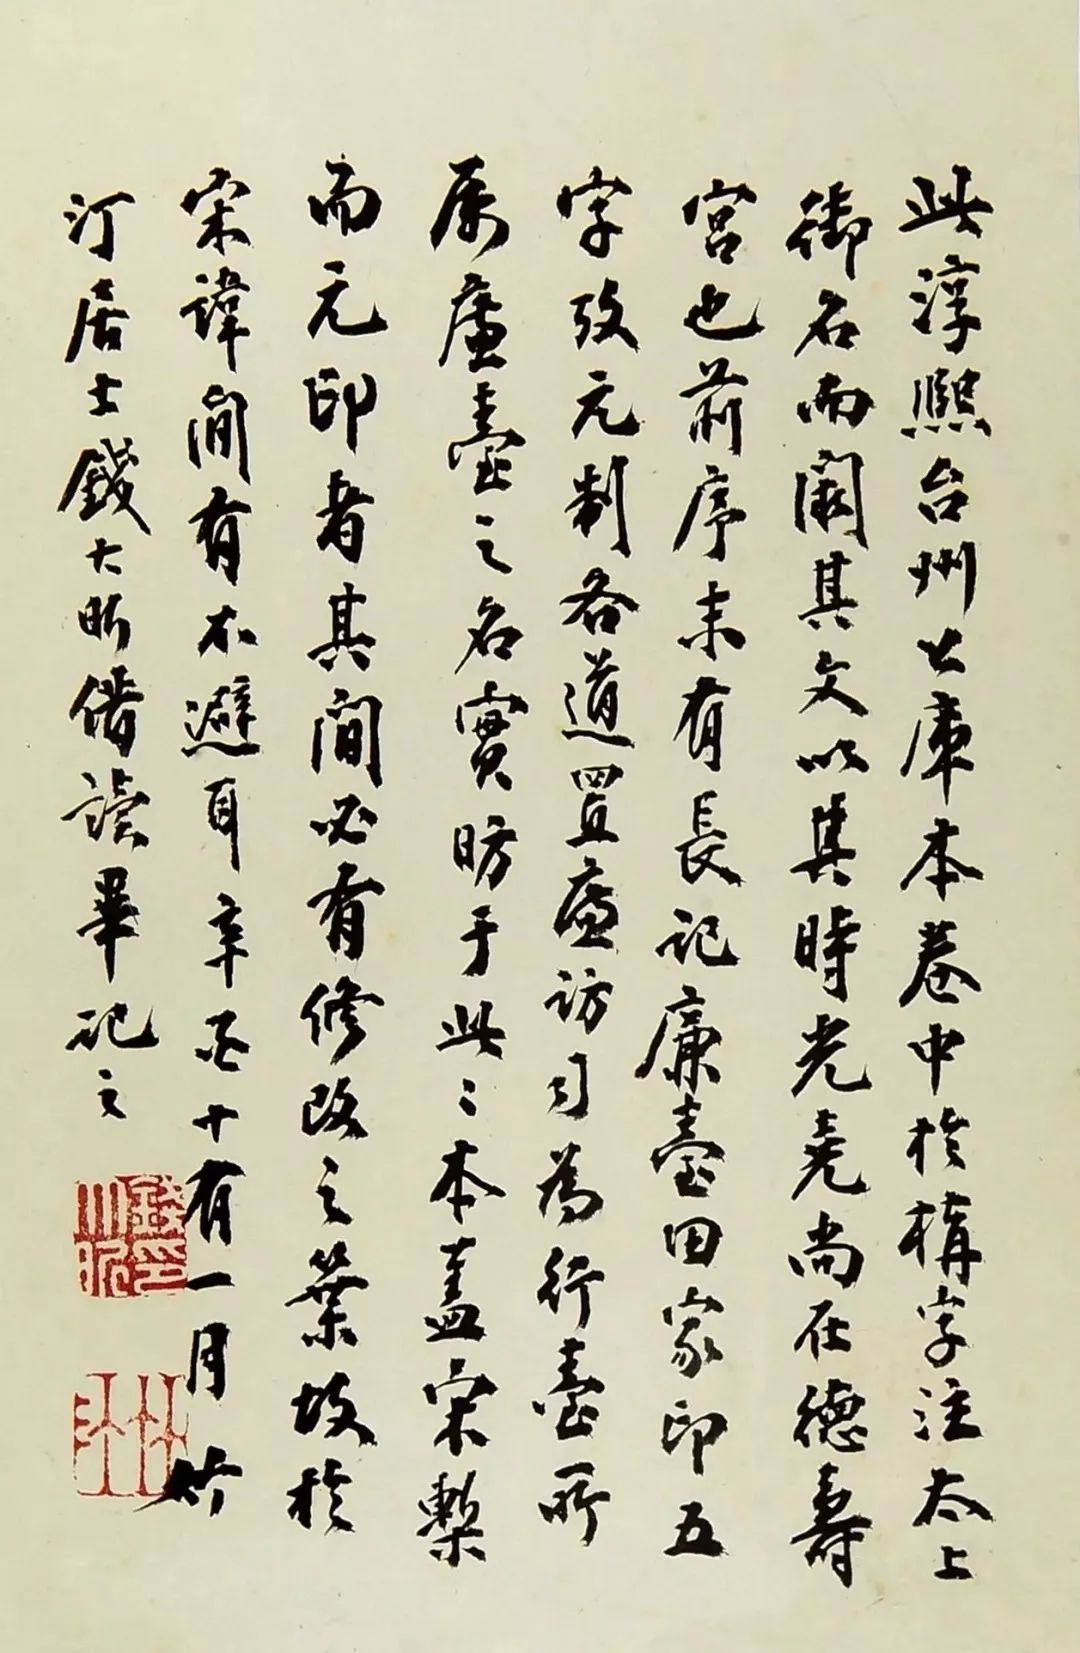 此淳熙台州公庫本卷中於構字注太上
御名而闕其文以其時光堯尚在德壽
宮也前序末有長記廉臺田家印五
字攷元制各道置廉訪司為行臺所
屬廉臺之名實昉于此〻本蓋宋槧
而元印者其間必有修改之葉故於
宋諱間有不避耳辛亥十有一月竹
汀居士錢大昕借讀畢記之
竹汀